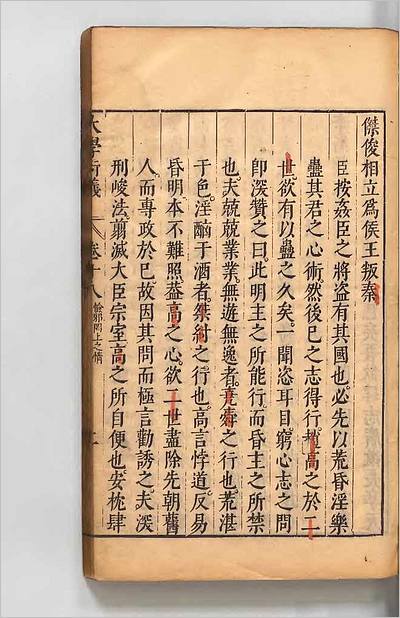 傑俊相立爲侯王叛秦
臣按姦臣之將盗有其國也必先以荒昏淫樂
蠱其君之心術然後已之志得行趙高之於二
世欲有以蠱之久矣一聞恣耳目窮心志之問
卽深贊之曰此明主之所能行而昏主之所禁
也夫兢兢業業無遊無逸者堯舜之行也荒湛
于色淫酗于酒者桀紂之行也高言悖道反易
昏明本不難照葢高之心欲二世盡除先朝舊
人而專政於已故因其問而極言勸誘之夫深
刑峻法翦滅大臣宗室高之所自便也安枕肆
大學衍義 卷十八 憸邪罔上之情